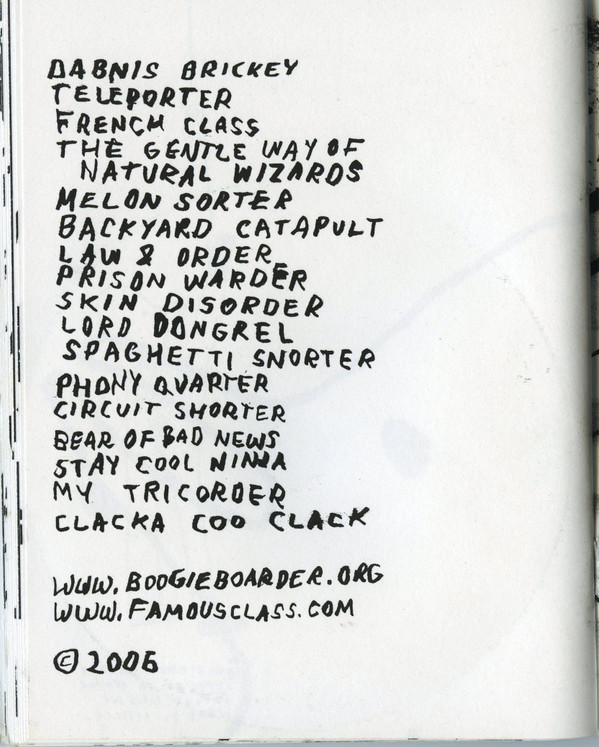 DABNIS BRICKEY
TELEPORTER
FRENCH CLASS
THE GENTLE WAY OF
NATURAL WIZARDS
MELON SORTER
BACKYARD CATAPULT
LAW & ORDER
PRISON WARDER
SKIN DISORDER
LORD DONGREL
SPAGHETTI SNORTER
PHONY QUARTER
CIRCUIT SHORTER
BEAR OF BAD NEWS
STAY COOL NINNA
MY TRICORDER
CLACKA COO CLACK
WWW.BOOGIEBOARDER.ORG
WWW.FAMOUSCLASS.COM
© 2006